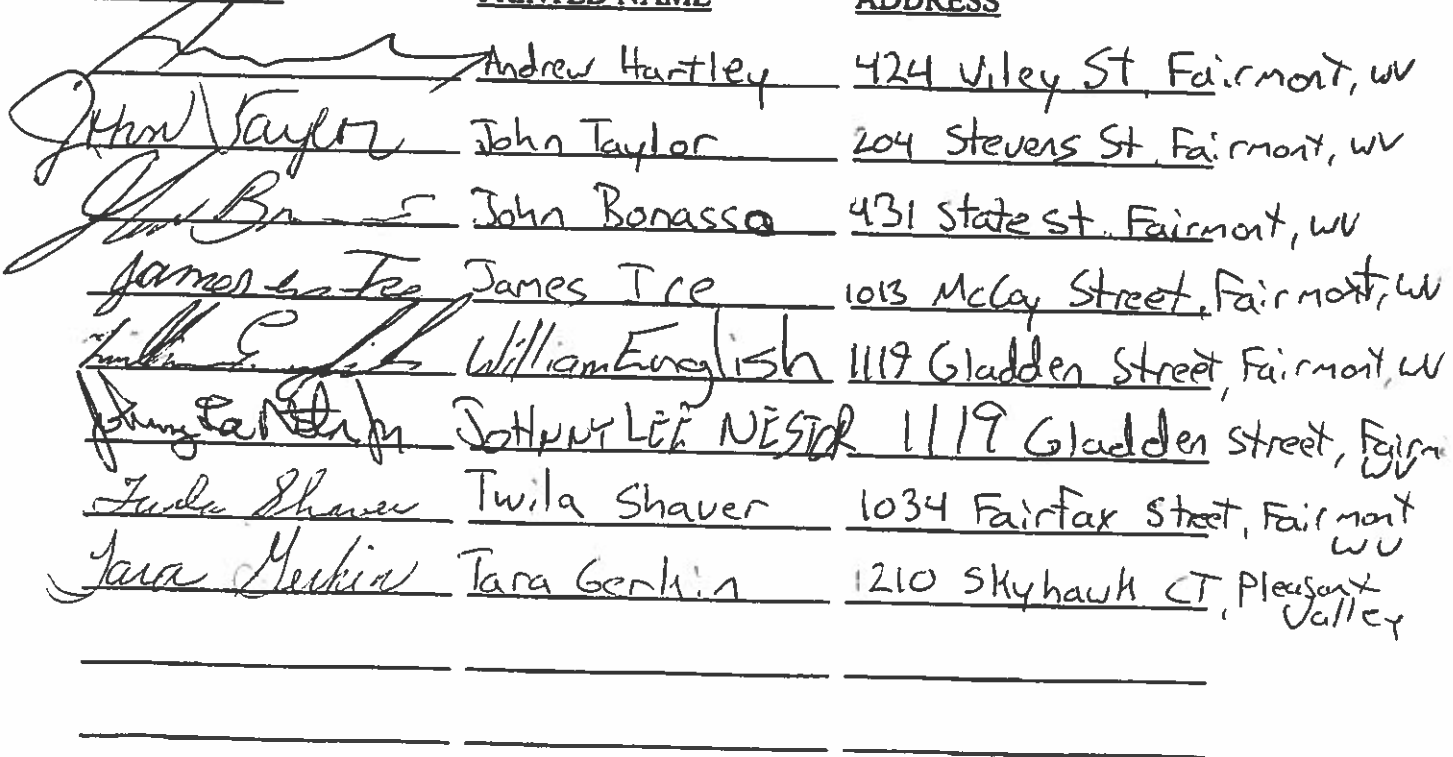 PRINTED NAME ADDRESS
Andrew Hartley 424 Viley St, Fairmont, WV
John Taylor John Taylor 204 Stevens St, Fairmont, WV
John Bonasso 431 State St. Fairmont, WV
James Ice James Ice 1013 McCoy Street, Fairmont, WV
William English 1119 Gladden Street, Fairmont, WV
JOHNNY LEE NESTOR 1119 Gladden Street, Fairm
WV
Twila Shaver Twila Shaver 1034 Fairfax Street, Fairmont
WV
Tara Gerkin Tara Gerkin 1210 Skyhawk CT, Pleasant
Valley